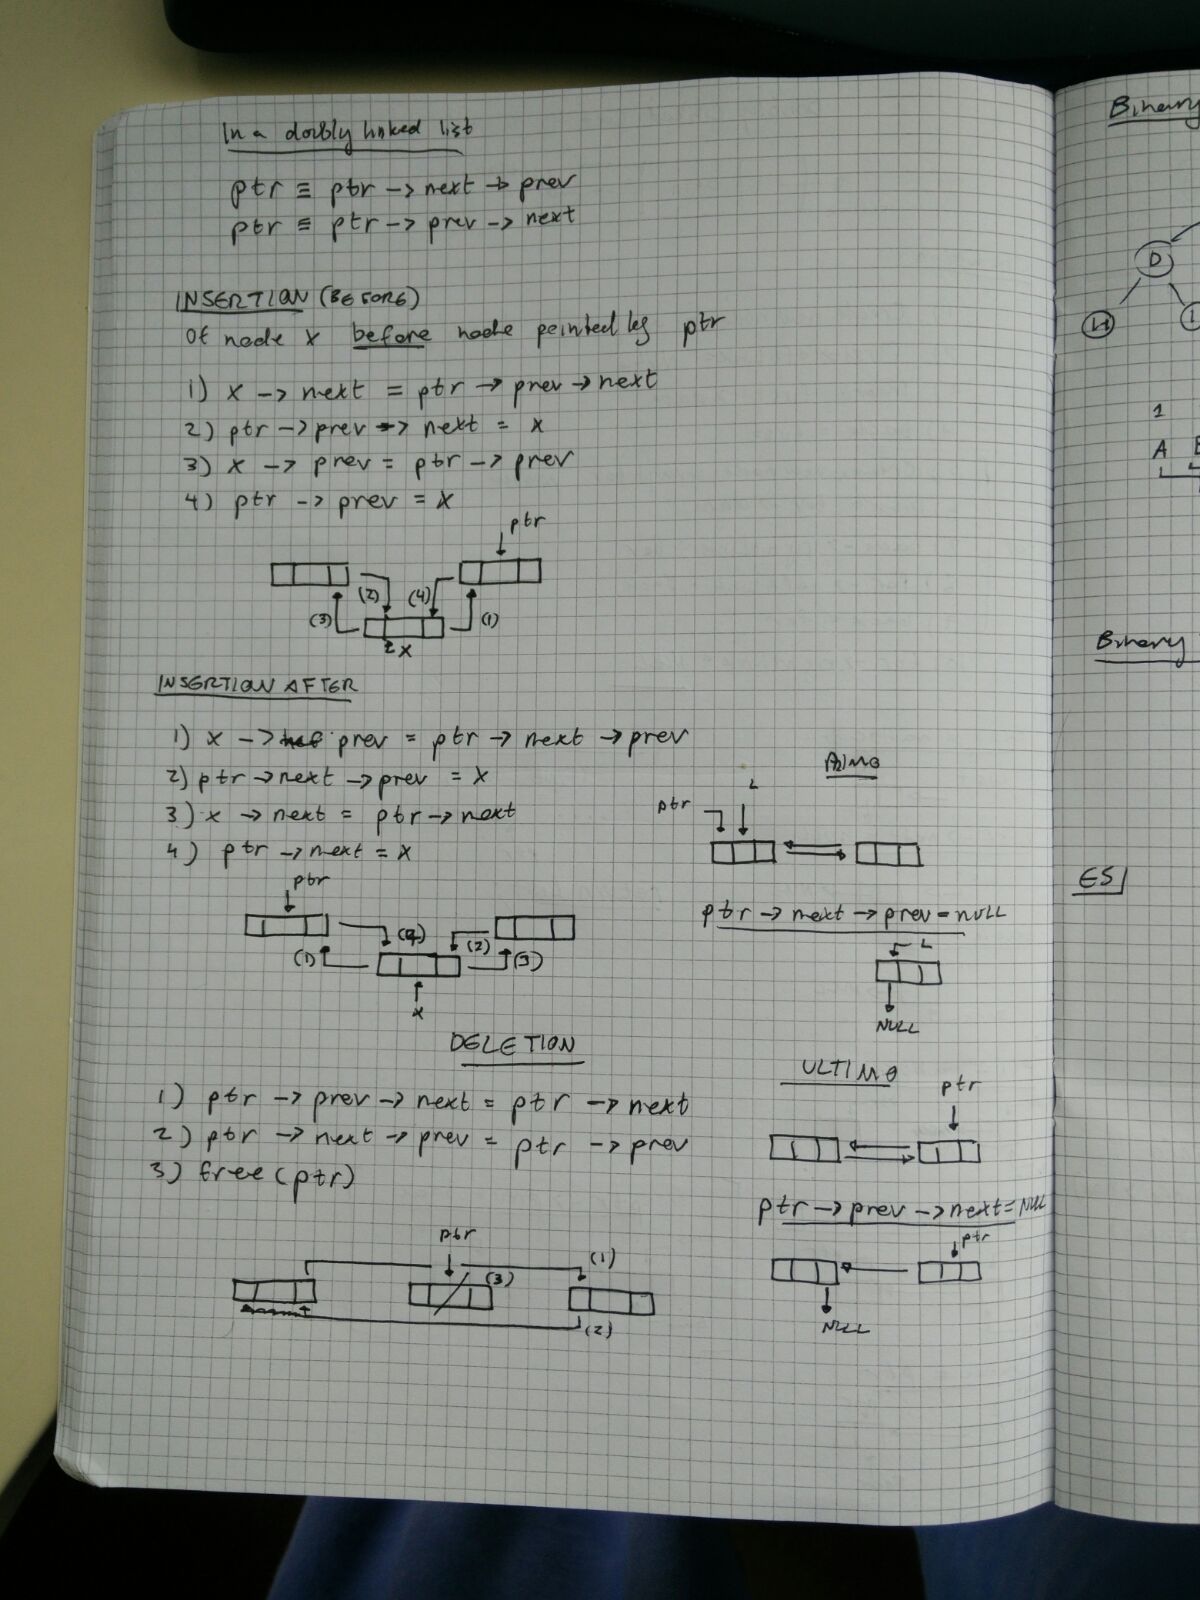 In a doubly linked list
ptr ≡ ptr -> next -> prev
ptr ≡ ptr -> prev -> next
INSERTION (BEFORE)
Of node x before node pointed by ptr
1) x -> next = ptr -> prev -> next
2) ptr -> prev -> next = x
3) x -> prev = ptr -> prev
4) ptr -> prev = x
ptr
(2) (4)
(3) (1)
x
INSERTION AFTER
1) x -> prev = ptr -> next -> prev
2) ptr -> next -> prev = x
3) x -> next = ptr -> next
4) ptr -> next = x
ptr
(4) (2)
(1) (3)
x
DELETION
1) ptr -> prev -> next = ptr -> next
2) ptr -> next -> prev = ptr -> prev
3) free(ptr)
ptr
(1)
(3)
(2)
L
ptr
ptr -> next -> prev = NULL
L
NULL
ULTIMO
ptr
ptr -> prev -> next = NULL
ptr
NULL
Binary
D
H
1
A
Binary
ES